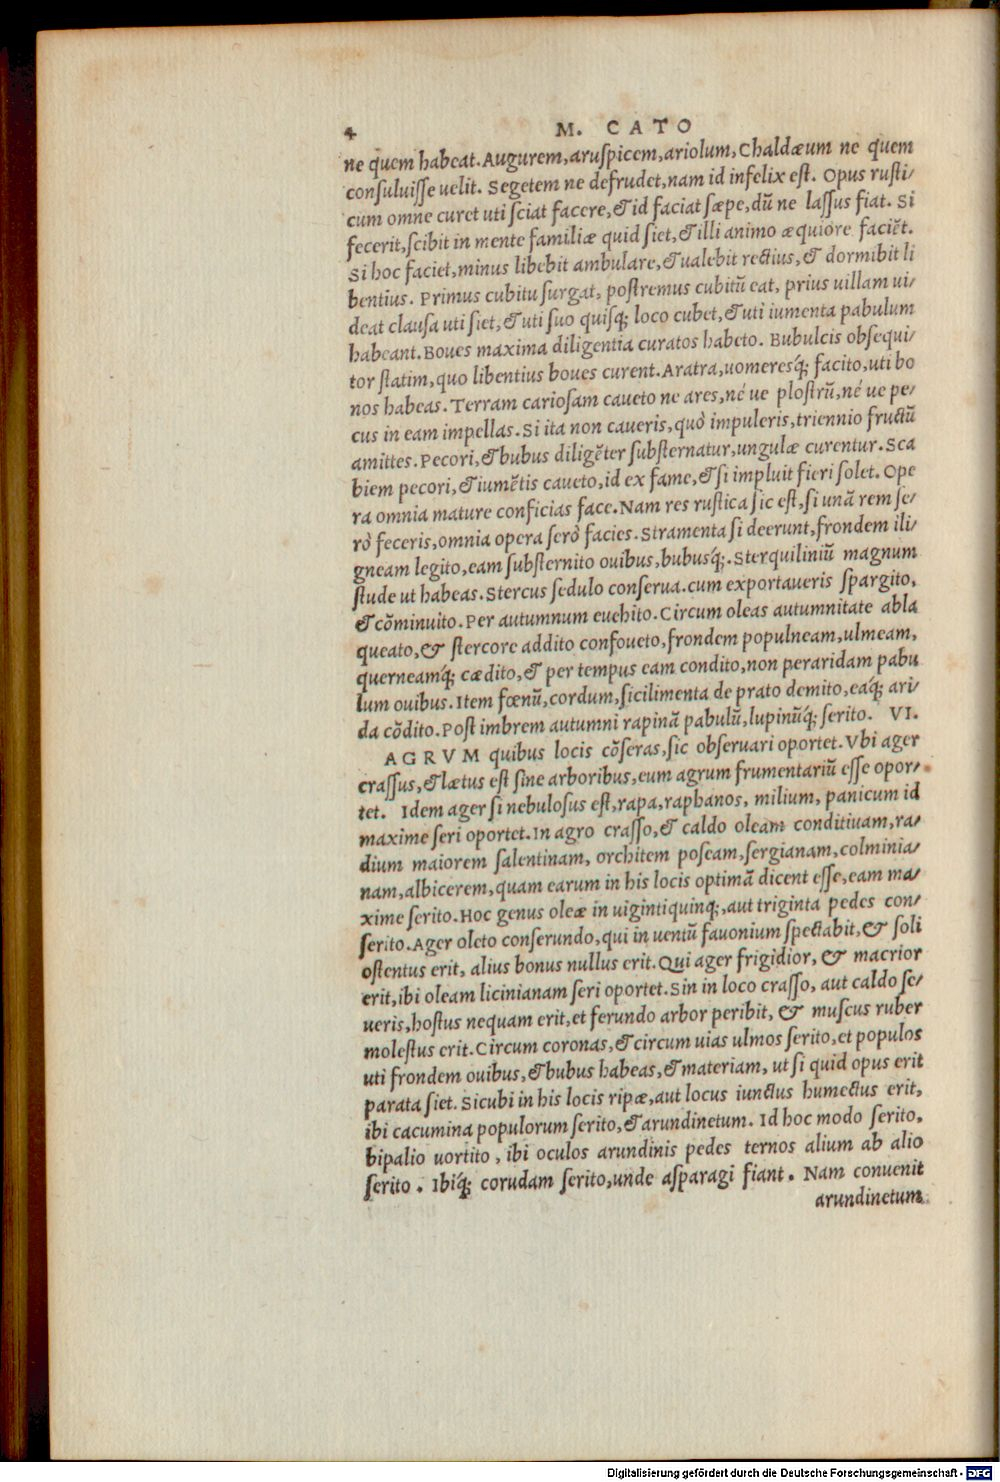 4 M. CATO
ne quem habeat. Augurem, aruſpicem, ariolum, Chaldæum ne quem
conſuluiſſe uelit. Segetem ne defrudet, nam id infelix eſt. Opus ruſti/
cum omne curet uti ſciat facere, & id faciat ſæpe, dū ne laſſus fiat. Si
fecerit, ſcibit in mente familiæ quid ſiet, & illi animo æquiore faciēt.
Si hoc faciet, minus libebit ambulare, & ualebit rectius, & dormibit li
bentius. Primus cubitu ſurgat, poſtremus cubitū eat, prius uillam ui/
deat clauſa uti ſiet, & uti ſuo quiſq; loco cubet, & uti iumenta pabulum
habeant. Boues maxima diligentia curatos habeto. Bubulcis obſequi/
tor ſtatim, quo libentius boues curent. Aratra, uomeresq́; facito, uti bo
nos habeas. Terram carioſam caueto ne ares, né ue ploſtrū, né ue pe/
cus in eam impellas. Si ita non caueris, quò impuleris, triennio fructū
amittes. Pecori, & bubus diligēter ſubſternatur, ungulæ curentur. Sca
biem pecori, & iumētis caueto, id ex fame, & ſi impluit fieri ſolet. Ope
ra omnia mature conficias face. Nam res ruſtica ſic eſt, ſi unā rem ſe/
rò feceris, omnia opera ſerò facies. Stramenta ſi deerunt, frondem ili/
gneam legito, eam ſubſternito ouibus, bubusq́;. Sterquiliniū magnum
ſtude ut habeas. Stercus ſedulo conſerua. cum exportaueris ſpargito,
& cōminuito. Per autumnum euehito. Circum oleas autumnitate abla
queato, & ſtercore addito confoueto, frondem populneam, ulmeam,
querneamq́; cædito, & per tempus eam condito, non peraridam pabu
lum ouibus. Item fœnū, cordum, ſicilimenta de prato demito, eaq́; ari/
da cōdito. Poſt imbrem autumni rapinā pabulū, lupinūq́; ſerito. VI.
AGRVM quibus locis cōſeras, ſic obſeruari oportet. Vbi ager
craſſus, & lætus eſt ſine arboribus, eum agrum frumentariū eſſe opor/
tet. Idem ager ſi nebuloſus eſt, rapa, raphanos, milium, panicum id
maxime ſeri oportet. In agro craſſo, & caldo oleam conditiuam, ra/
dium maiorem ſalentinam, orchitem poſeam, ſergianam, colminia/
nam, albicerem, quam earum in his locis optimā dicent eſſe, eam ma/
xime ſerito. Hoc genus oleæ in uigintiquinq;, aut triginta pedes con/
ſerito. Ager oleto conſerundo, qui in uentū fauonium ſpectabit, & ſoli
oſtentus erit, alius bonus nullus erit. Qui ager frigidior, & macrior
erit, ibi oleam licinianam ſeri oportet. Sin in loco craſſo, aut caldo ſe/
ueris, hoſtus nequam erit, et ferundo arbor peribit, & muſcus ruber
moleſtus erit. Circum coronas, & circum uias ulmos ſerito, et populos
uti frondem ouibus, & bubus habeas, & materiam, ut ſi quid opus erit
parata ſiet. Sicubi in his locis ripæ, aut locus iunctus humectus erit,
ibi cacumina populorum ſerito, & arundinetum. Id hoc modo ſerito,
bipalio uortito, ibi oculos arundinis pedes ternos alium ab alio
ſerito. Ibiq́; corudam ſerito, unde aſparagi fiant. Nam conuenit
arundinetum
Digitalisierung gefördert durch die Deutsche Forschungsgemeinschaft - DFG